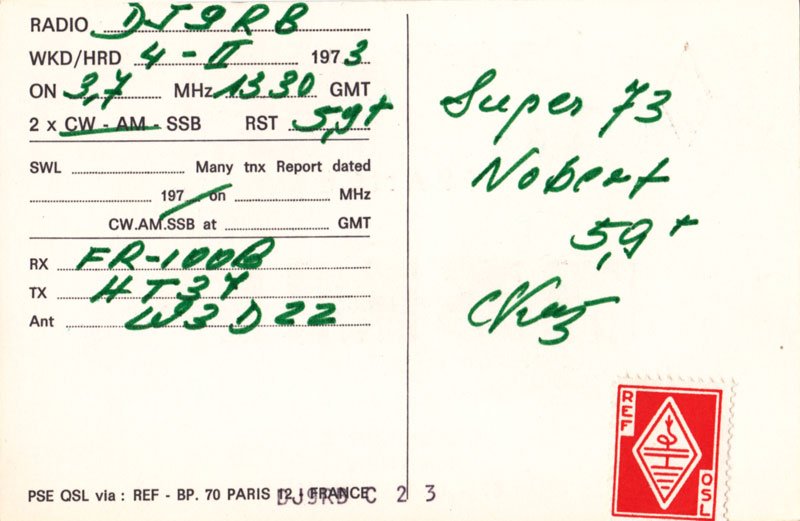 RADIO DJ9RB
WKD/HRD 4-II 1973
ON 3,7 MHz 1330 GMT
2 x CW - AM - SSB RST 5,9+
SWL Many tnx Report dated
197 on MHz
CW.AM.SSB at GMT
RX FR-100B
TX HT37
Ant W3D22
PSE QSL via : REF - BP. 70 PARIS 12 - FRANCE
DJ9RB C 2 3
Super 73
Nobert
5,9+
REF
QSL